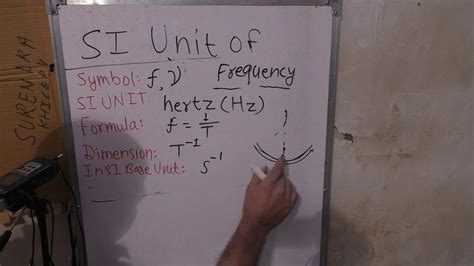 SI Unit of
Frequency
Symbol: f, ν
SI UNIT: hertz (Hz)
Formula: f = 1/T
Dimension: T⁻¹
In SI Base Unit: s⁻¹
SURENARA